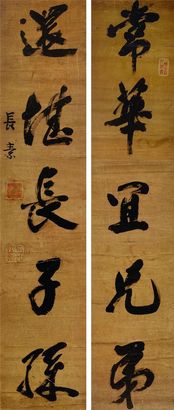 常華宜兄弟
還堪長子孫
長素